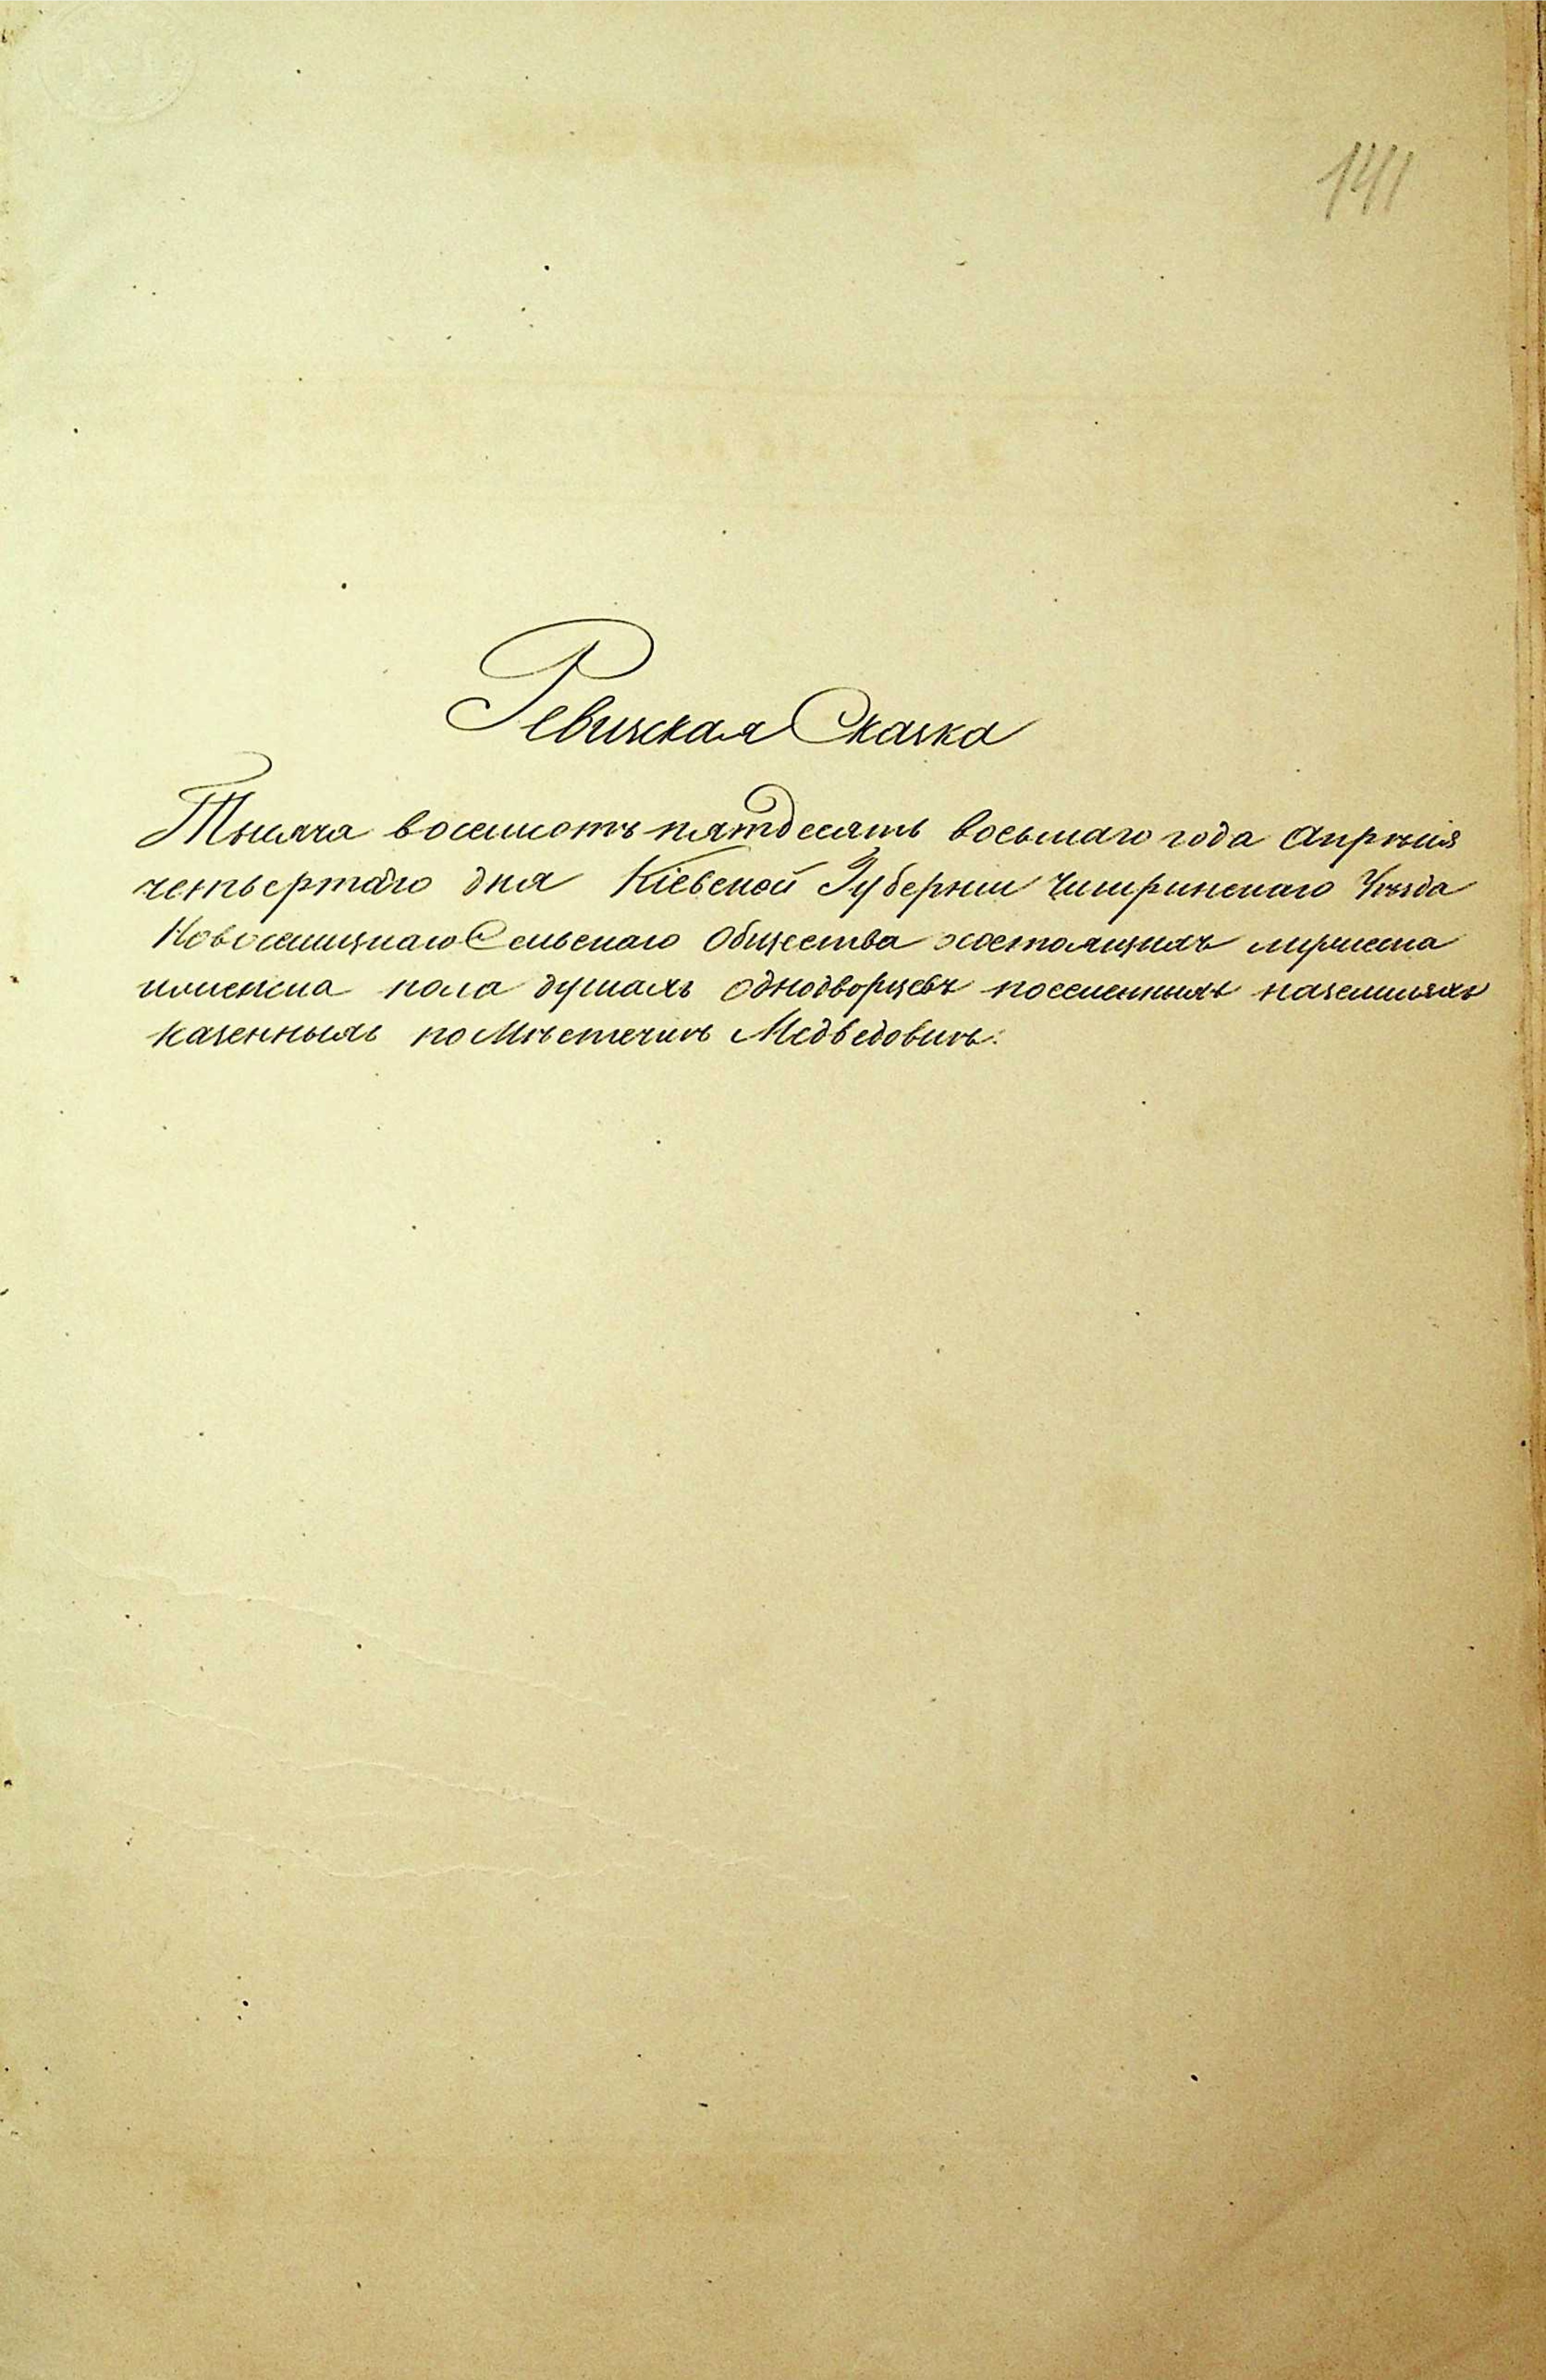 141
Ревизская Сказка
Тысяча восемсотъ пятдесять восьмаго года Апрѣля
четьвертаго дня Кіевской Губерніи Чигринскаго Уѣзда
Новоселицкаго Сельскаго Общества о состоящихъ мужеска
и женска пола душахъ однодворцевъ поселенныхъ на земляхъ
казенныхъ по Мѣстечку Медведовкѣ.